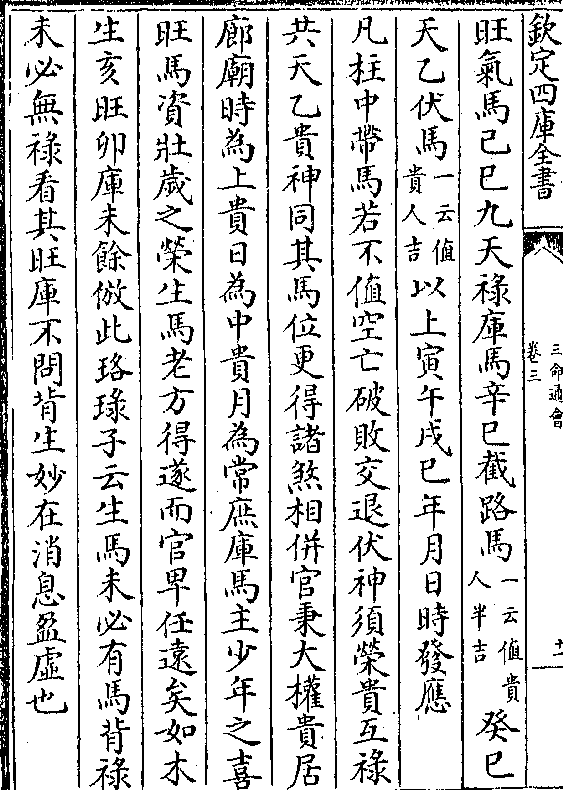 欽定四庫全書
三命通會
卷三
十一
旺氣馬己巳九天祿庫馬辛巳截路馬一云值貴人半吉癸巳
天乙伏馬一云值貴人吉以上寅午戌巳年月日時發應
凡柱中帶馬若不值空亡破敗交退伏神須榮貴互祿
共天乙貴神同其馬位更得諸煞相併官秉大權貴居
廊廟時為上貴日為中貴月為常庶庫馬主少年之喜
旺馬資壯歲之榮生馬老方得遂而官卑任遠矣如木
生亥旺卯庫未餘倣此珞琭子云生馬未必有馬背祿
未必無祿看其旺庫不問背生妙在消息盈虛也